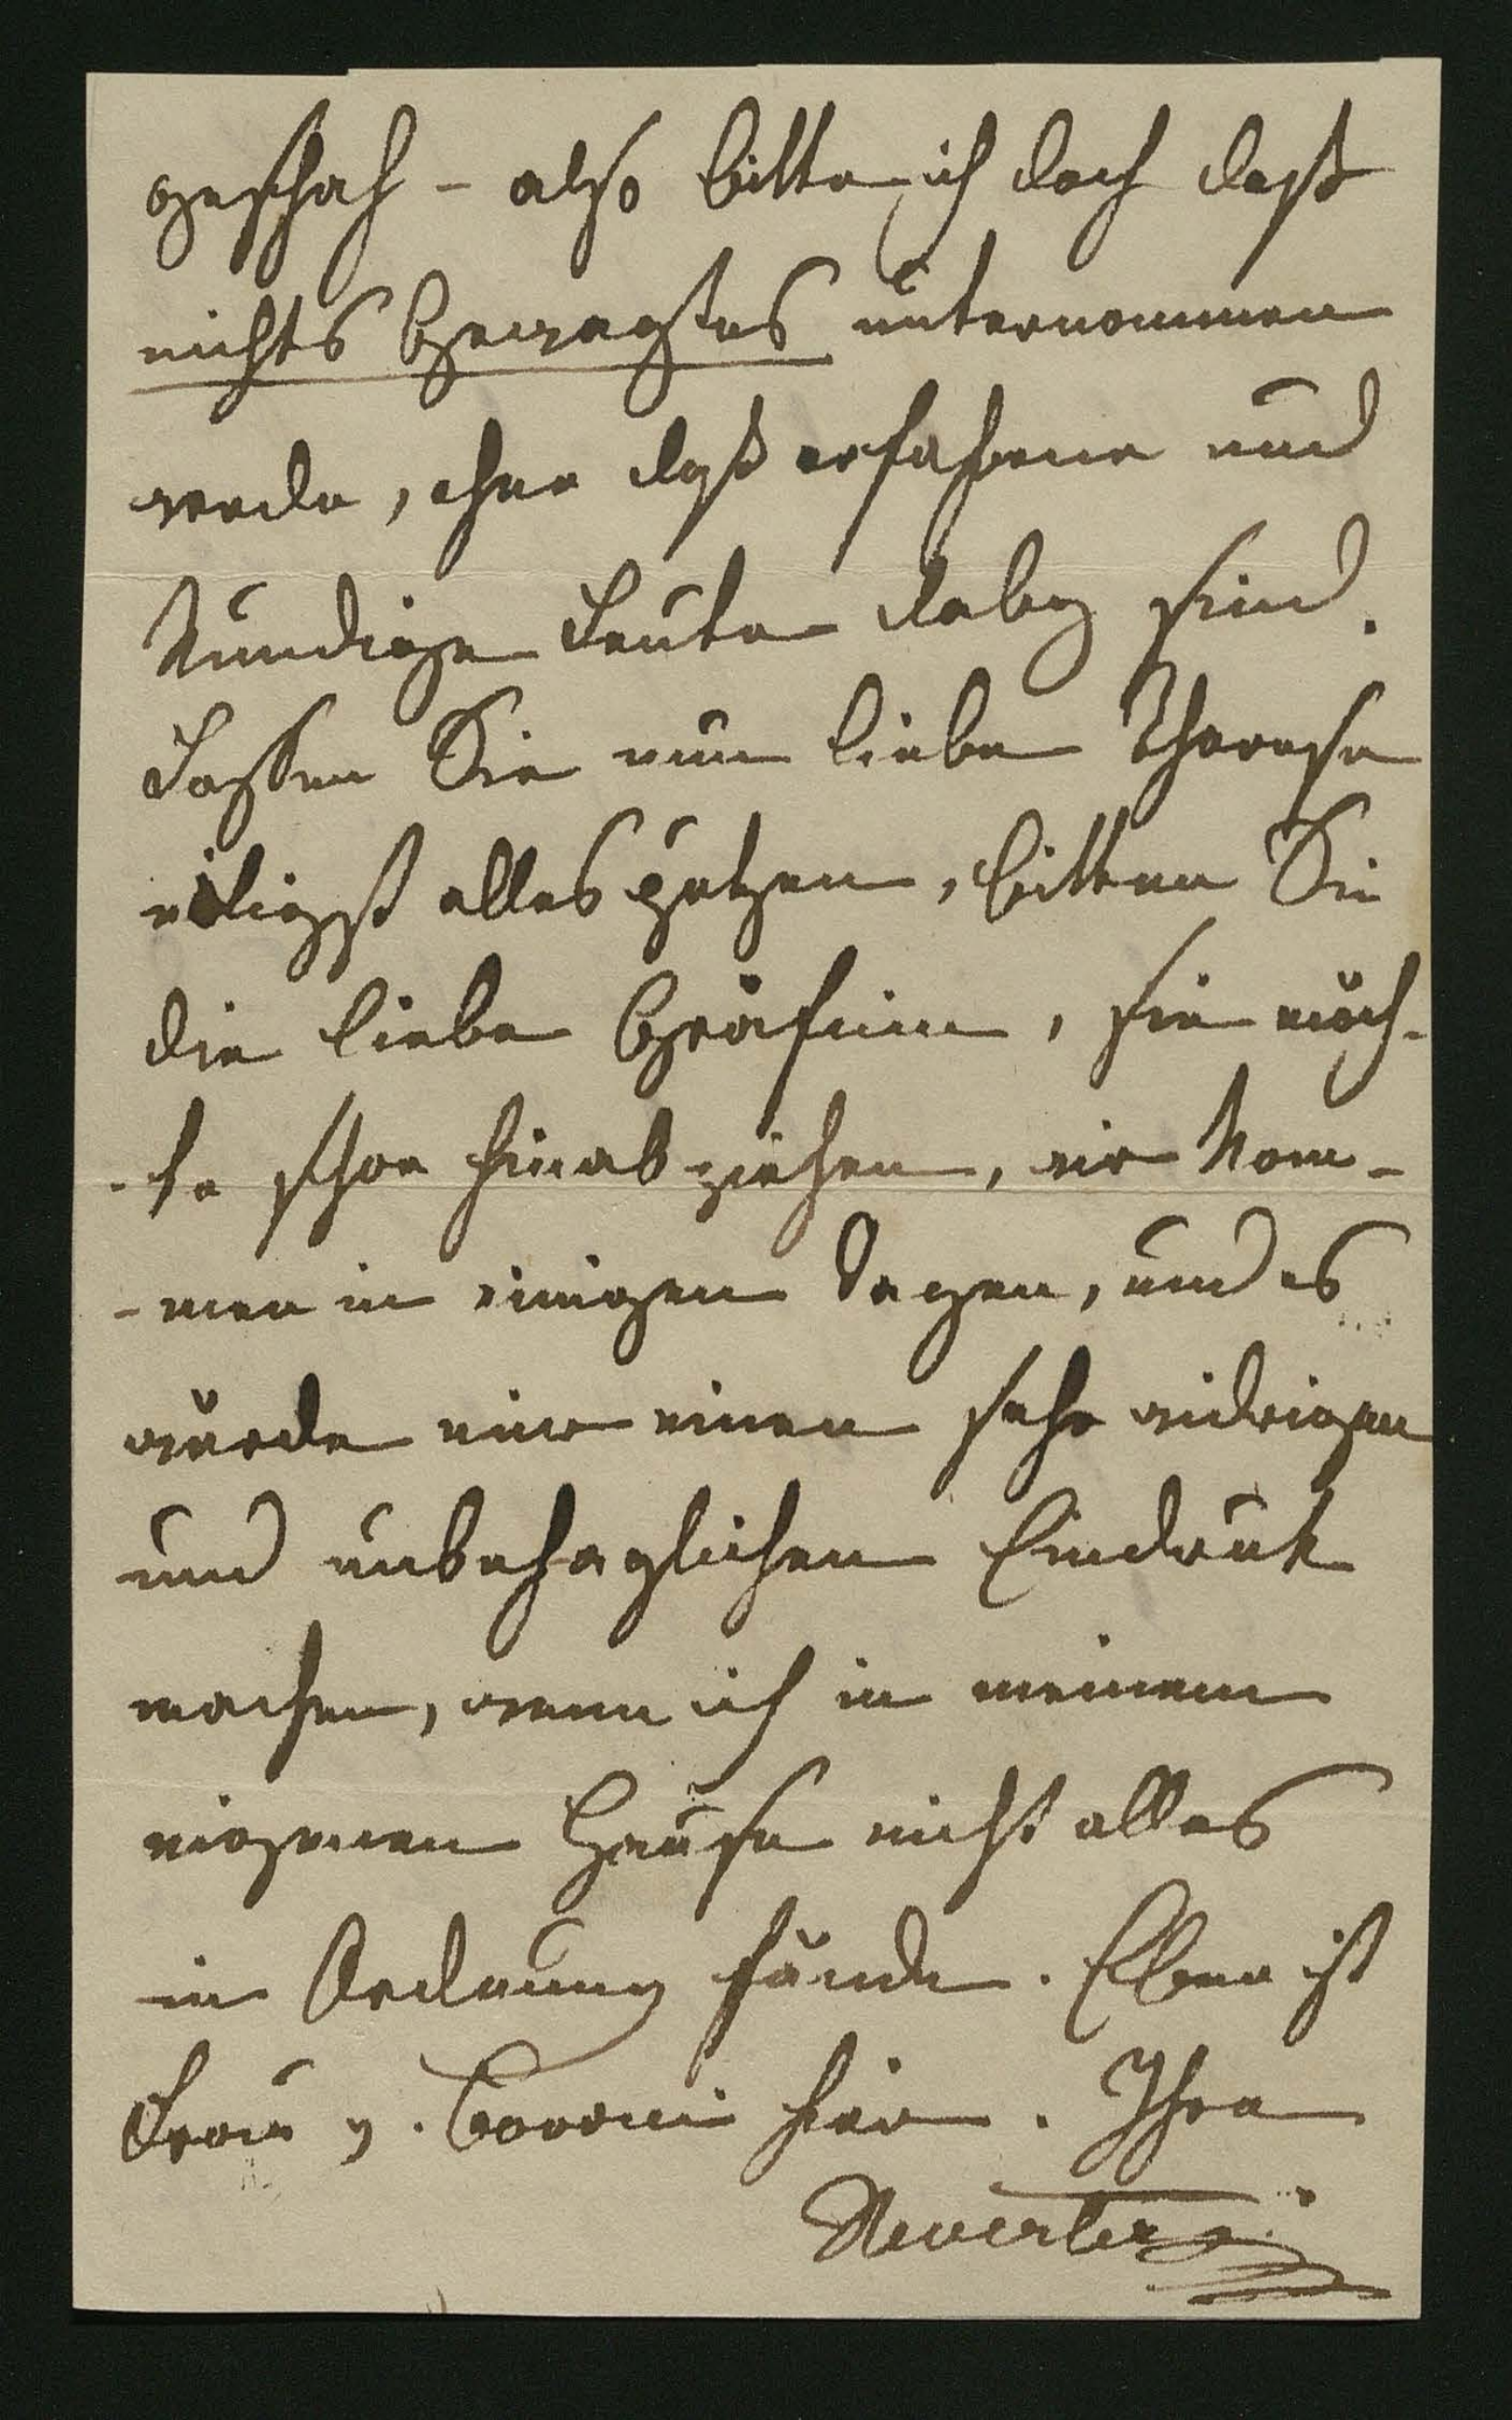 geschah - also bitte ich doch daß
nichts Gewagtes unternommen
werde, ohne daß erfahrene und
Kundige Leute dabey sind.
Lassen Sie nun liebe Therese
eiligst alles putzen, bitten Sie
die liebe Gräfinn, sie möch-
-te schon hinabziehen, wir kom-
-men in einigen Tagen, und es
würde mir einen sehr widrigen
und unbehaglichen Eindruk
machen, wenn ich in meinem
eigenen Hause nicht alles
in Ordnung fände. Eben ist
Frau v. hier. Ihre
Neuerter